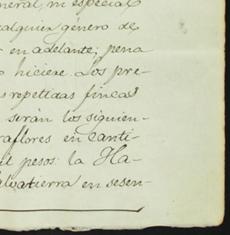 neral, ni especial
alquier género de
r en adelante; pena
o hiciere. Los pre-
s repetidas fincas
serán los siguien-
raflores en canti-
il pesos la Ha-
alvatierra en sesen-